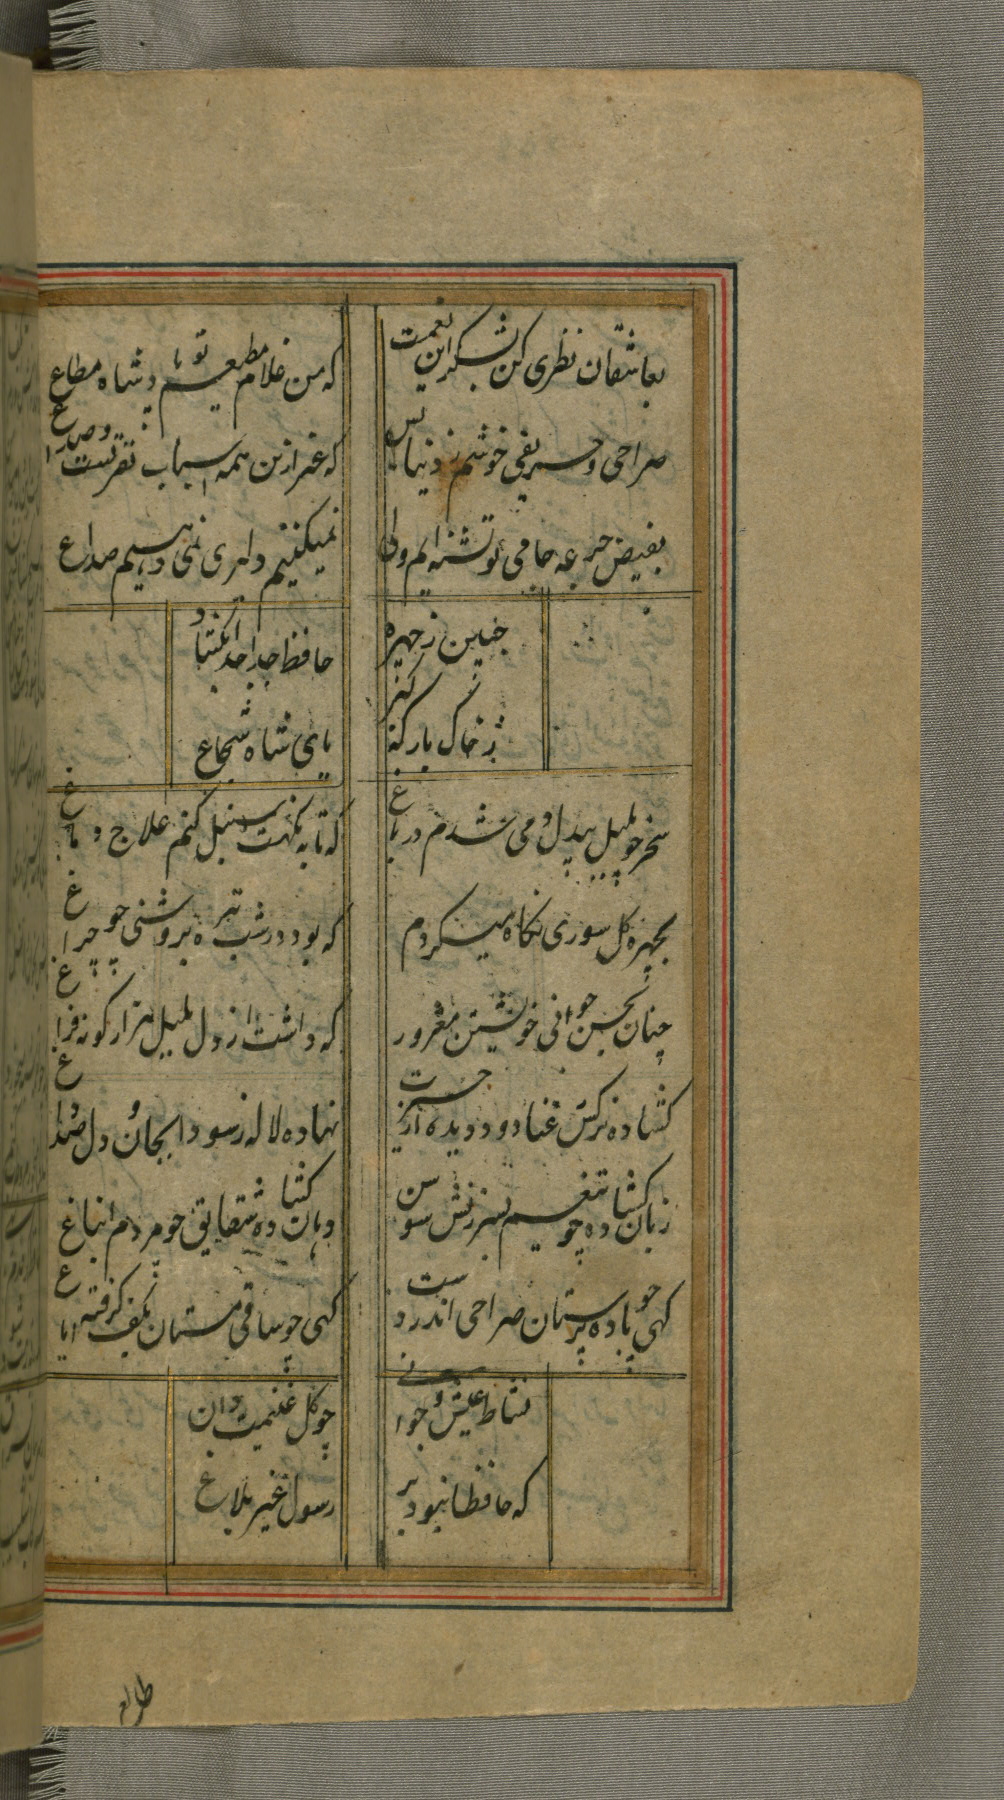 بعاشقان نظری کن بشکر این نعمت
که من غلام مطیعم تو پادشاه مطاع
صراحی و حریفی خوشم ز دنیا بس
که غیر ازین همه اسباب تفرقست و صداع
بفیض جرعه جام تو تشنه ایم ولی
نمیکنیم دلیری نمی دهیم صداع
جبین ز چهره حافظ جدا خدا مکناد
ز خاک بارکه کبریای شاه شجاع
سحر چو بلبل بیدل دمی شدم در باغ
که تا به نکهت سنبل کنم علاج دماغ
بچهره کل سوری نکاه میکردم
که بود در شب تیره بروشنی چو چراغ
چنان بحسن جوانی خویشتن مغرور
که داشت از دل بلبل هزار کونه فراغ
کشاده نرکس رعنا دو دیده از حسرت
نهاده لاله ز سودا بجان و دل صد داغ
زبان کشاده چو تیغم بسرزنش سوسن
دهان کشاده شقایق چو مردم ایغاغ
کهی چو باده پرستان صراحی اندر دست
کهی چو ساقی مستان بکف کرفته ایاغ
نشاط عیش و جوانی چو کل غنیمت دان
که حافظا نبود بر رسول غیر بلاغ
طالع